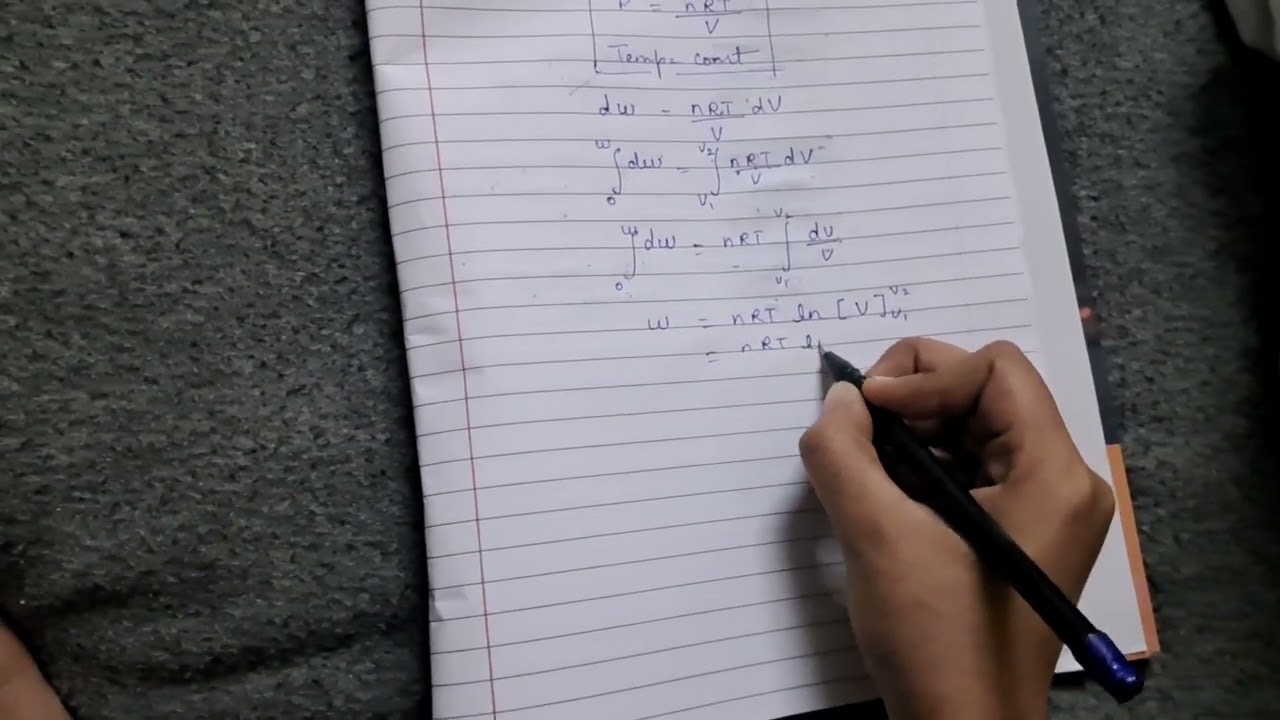 P = nRT/V
Temp = const
dw = nRT/V dV
∫₀ʷ dw = ∫_V₁^V₂ nRT/V dV
∫₀ʷ dw = nRT ∫_V₁^V₂ dV/V
w = nRT ln [V]_V₁^V₂
= nRT ln